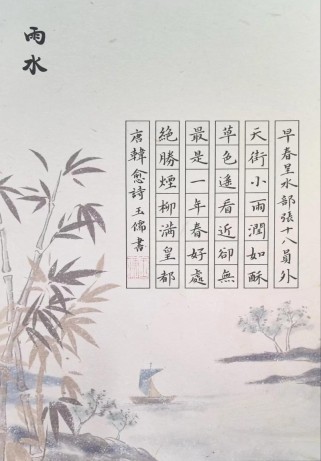 雨水
早春呈水部張十八員外
天街小雨潤如酥
草色遙看近卻無
最是一年春好處
絕勝煙柳滿皇都
唐韓愈詩玉儒書